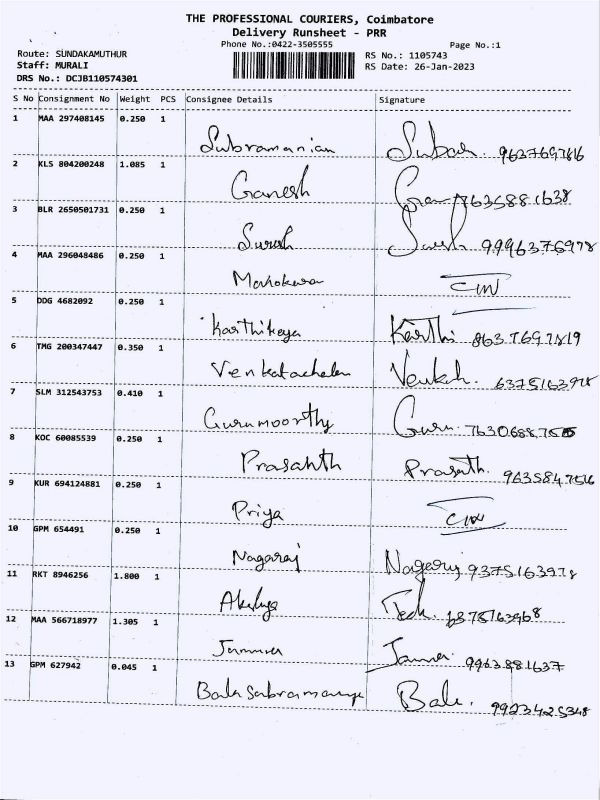 THE PROFESSIONAL COURIERS, Coimbatore
Delivery Runsheet - PRR
Phone No.:0422-3505555 Page No.:1
Route: SUNDAKAMUTHUR RS No.: 1105743
Staff: MURALI RS Date: 26-Jan-2023
DRS No.: DCJB110574301
S No Consignment No Weight PCS Consignee Details Signature
1 MAA 297408145 0.250 1
Subramanian
2 KLS 804200248 1.085 1
Ganesh
3 BLR 2650501731 0.250 1
Suresh Suresh 9996376978
4 MAA 296048486 0.250 1
5 DDG 4682092 0.250 1
Karthikeya Karthi 8637697819
6 TMG 200347447 0.350 1
Venkatachalam
7 SLM 312543753 0.410 1
Gurumoorthy Guru.
8 KOC 60085539 0.250 1
Prasanth Prasath. 9635847516
9 KUR 694124881 0.250 1
Priya
10 GPM 654491 0.250 1
Nagaraj Nagaraj 9375163978
11 RKT 8946256 1.800 1
12 MAA 566718977 1.305 1
9963881637
13 GPM 627942 0.045 1
Bala. 9923425348